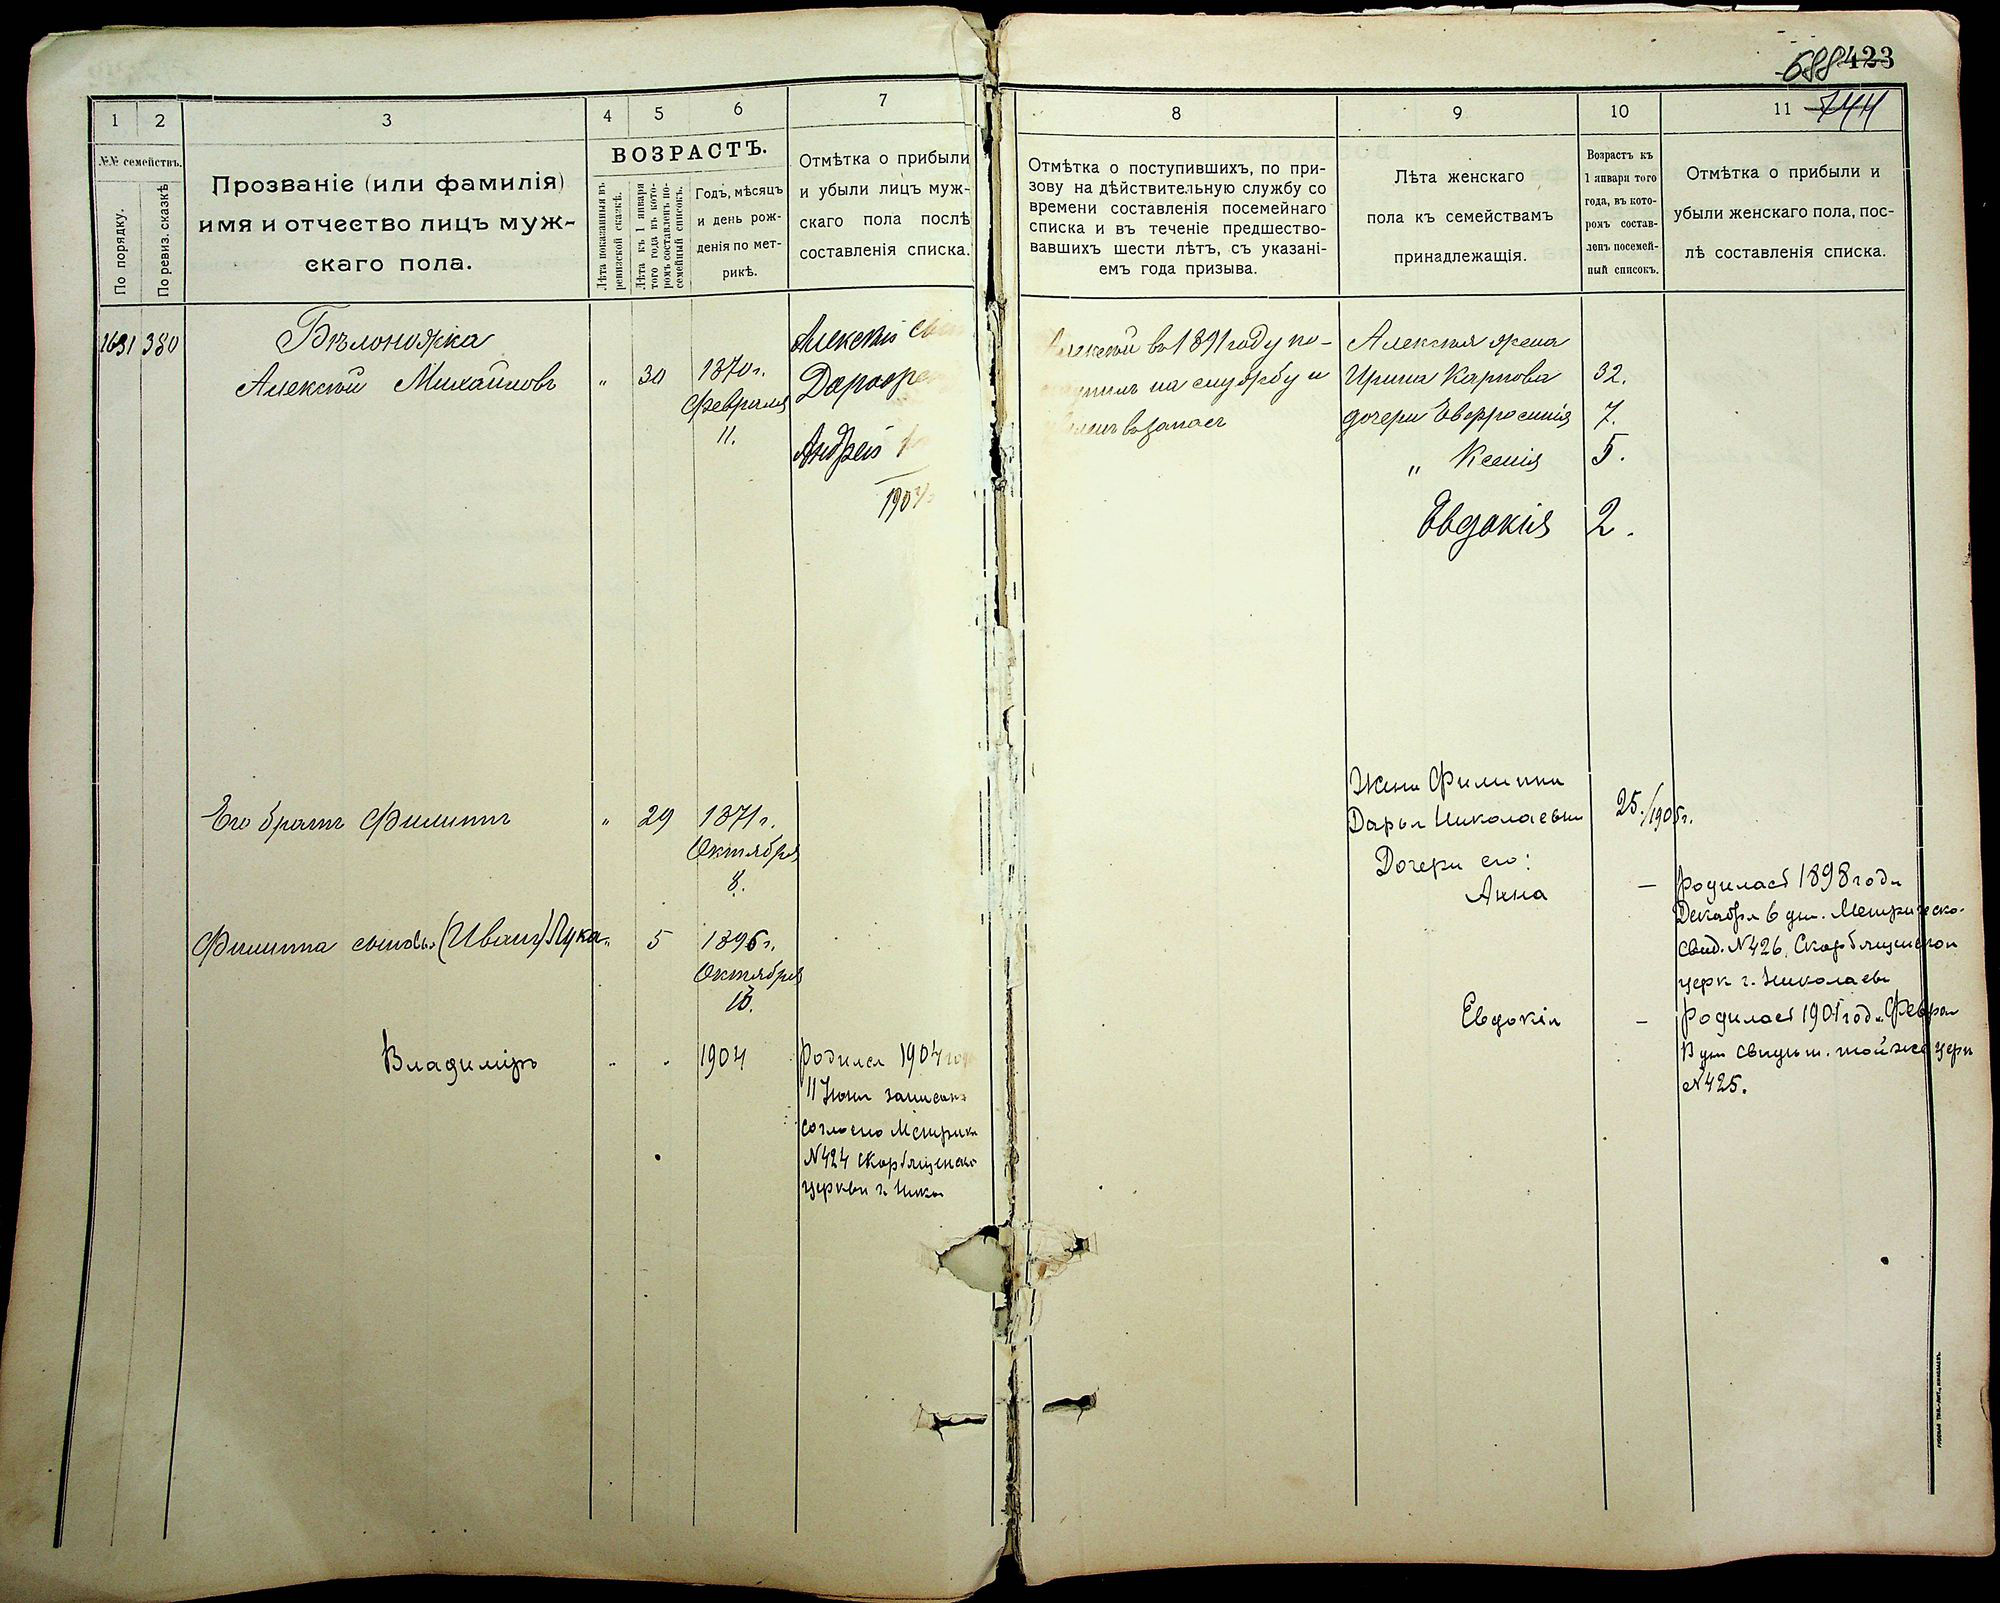 688 423
744
1
2
3
4
5
6
7
8
9
10
11
№№ семействъ.
По порядку.
По ревиз. сказкѣ
Прозваніе (или фамилія)
имя и отчество лицъ муж-
скаго пола.
ВОЗРАСТЪ.
Лѣта показанныя въ
ревизской сказкѣ.
Лѣта къ 1 января
того года въ кото-
ромъ составленъ по-
семейный списокъ.
Годъ, мѣсяцъ
и день рож-
денія по мет-
рикѣ.
Отмѣтка о прибыли
и убыли лицъ муж-
скаго пола послѣ
составленія списка.
Отмѣтка о поступившихъ, по при-
зову на дѣйствительную службу со
времени составленія посемейнаго
списка и въ теченіе предшество-
вавшихъ шести лѣтъ, съ указані-
емъ года призыва.
Лѣта женскаго
пола къ семействамъ
принадлежащія.
Возрастъ къ
1 января того
года, въ кото-
ромъ состав-
ленъ посемей-
ный списокъ.
Отмѣтка о прибыли и
убыли женскаго пола, пос-
лѣ составленія списка.
1631 380
Бѣлоножка
Алексѣй Михайловъ " 30 1870 г.
Февраля
11.
Алексѣй
Андрей
190
Алексѣй въ 1891 году по-
на службу и
въ запасъ
Алексѣя жена
Ирина Карпова 32.
дочери Евфросинія 7.
" Ксенія 5.
Евдокія 2.
Его братъ Филиппъ " 29 1871 г.
Октября
8.
Жена Филиппа
Дарья Николаевна 25./1905 г.
Дочери его:
Анна — родилась 1898 года
Декабря 6 дня. Метрическо.
Свид. №426. Скорбященской
церк г. Николаева
Филиппа сыновья (Иванъ) Лука " 5 1895 г.
Октября
18.
Евдокія — родилась 1901 года Феврал
дня свидет. той же церк
№425.
Владиміръ " " 1904
родился 1904 го
11 Іюня записанъ
согласно Метрики
№424 Скорбященской
церкви г. Нико
РУССКАЯ ТИП.-ЛИТ., НИКОЛАЕВЪ.